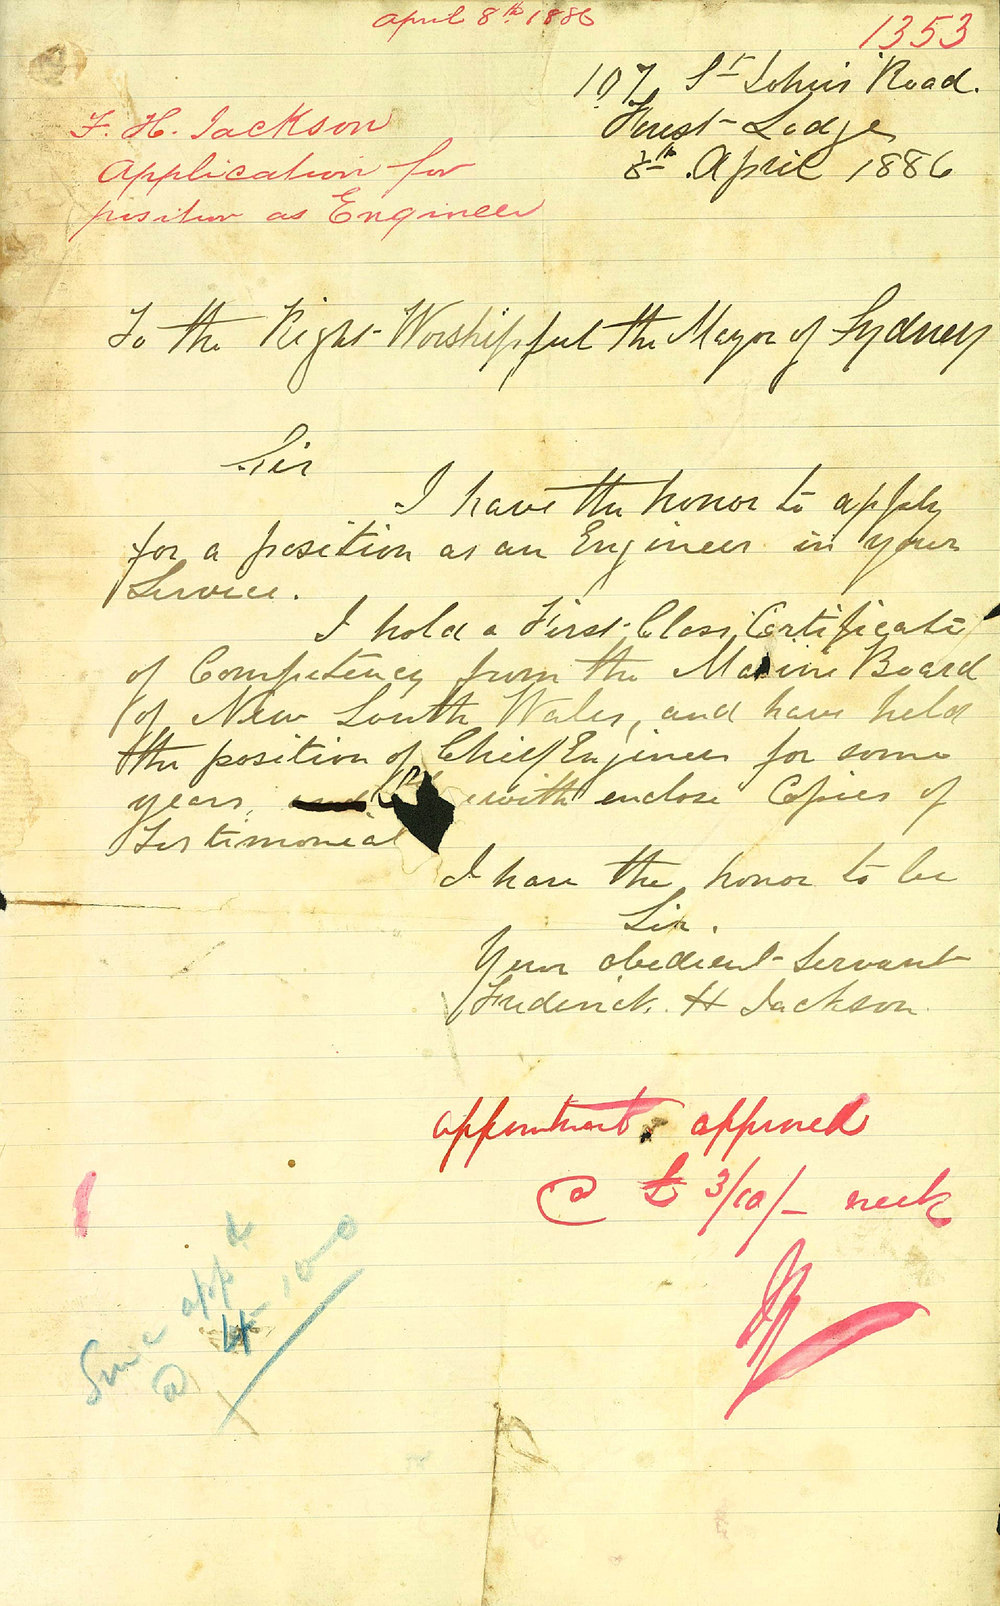 April 8th 1886
1353
107 St Johns Road.
Forest Lodge
8th April 1886
F. H. Jackson
Application for
position as Engineer
To the Right Worshipful the Mayor of Sydney
Sir
I have the honor to apply
for a position as an Engineer in your
Service.
I hold a First Class Certificate
of Competency from the Marine Board
of New South Wales, and have held
the position of Chief Engineer for some
years, and with enclose Copies of
Testimonial
I have the honor to be
Sir.
Your obedient Servant
Frederick. H Jackson.
appointment approved
@ £3/10/- week
Since appd
@ 4